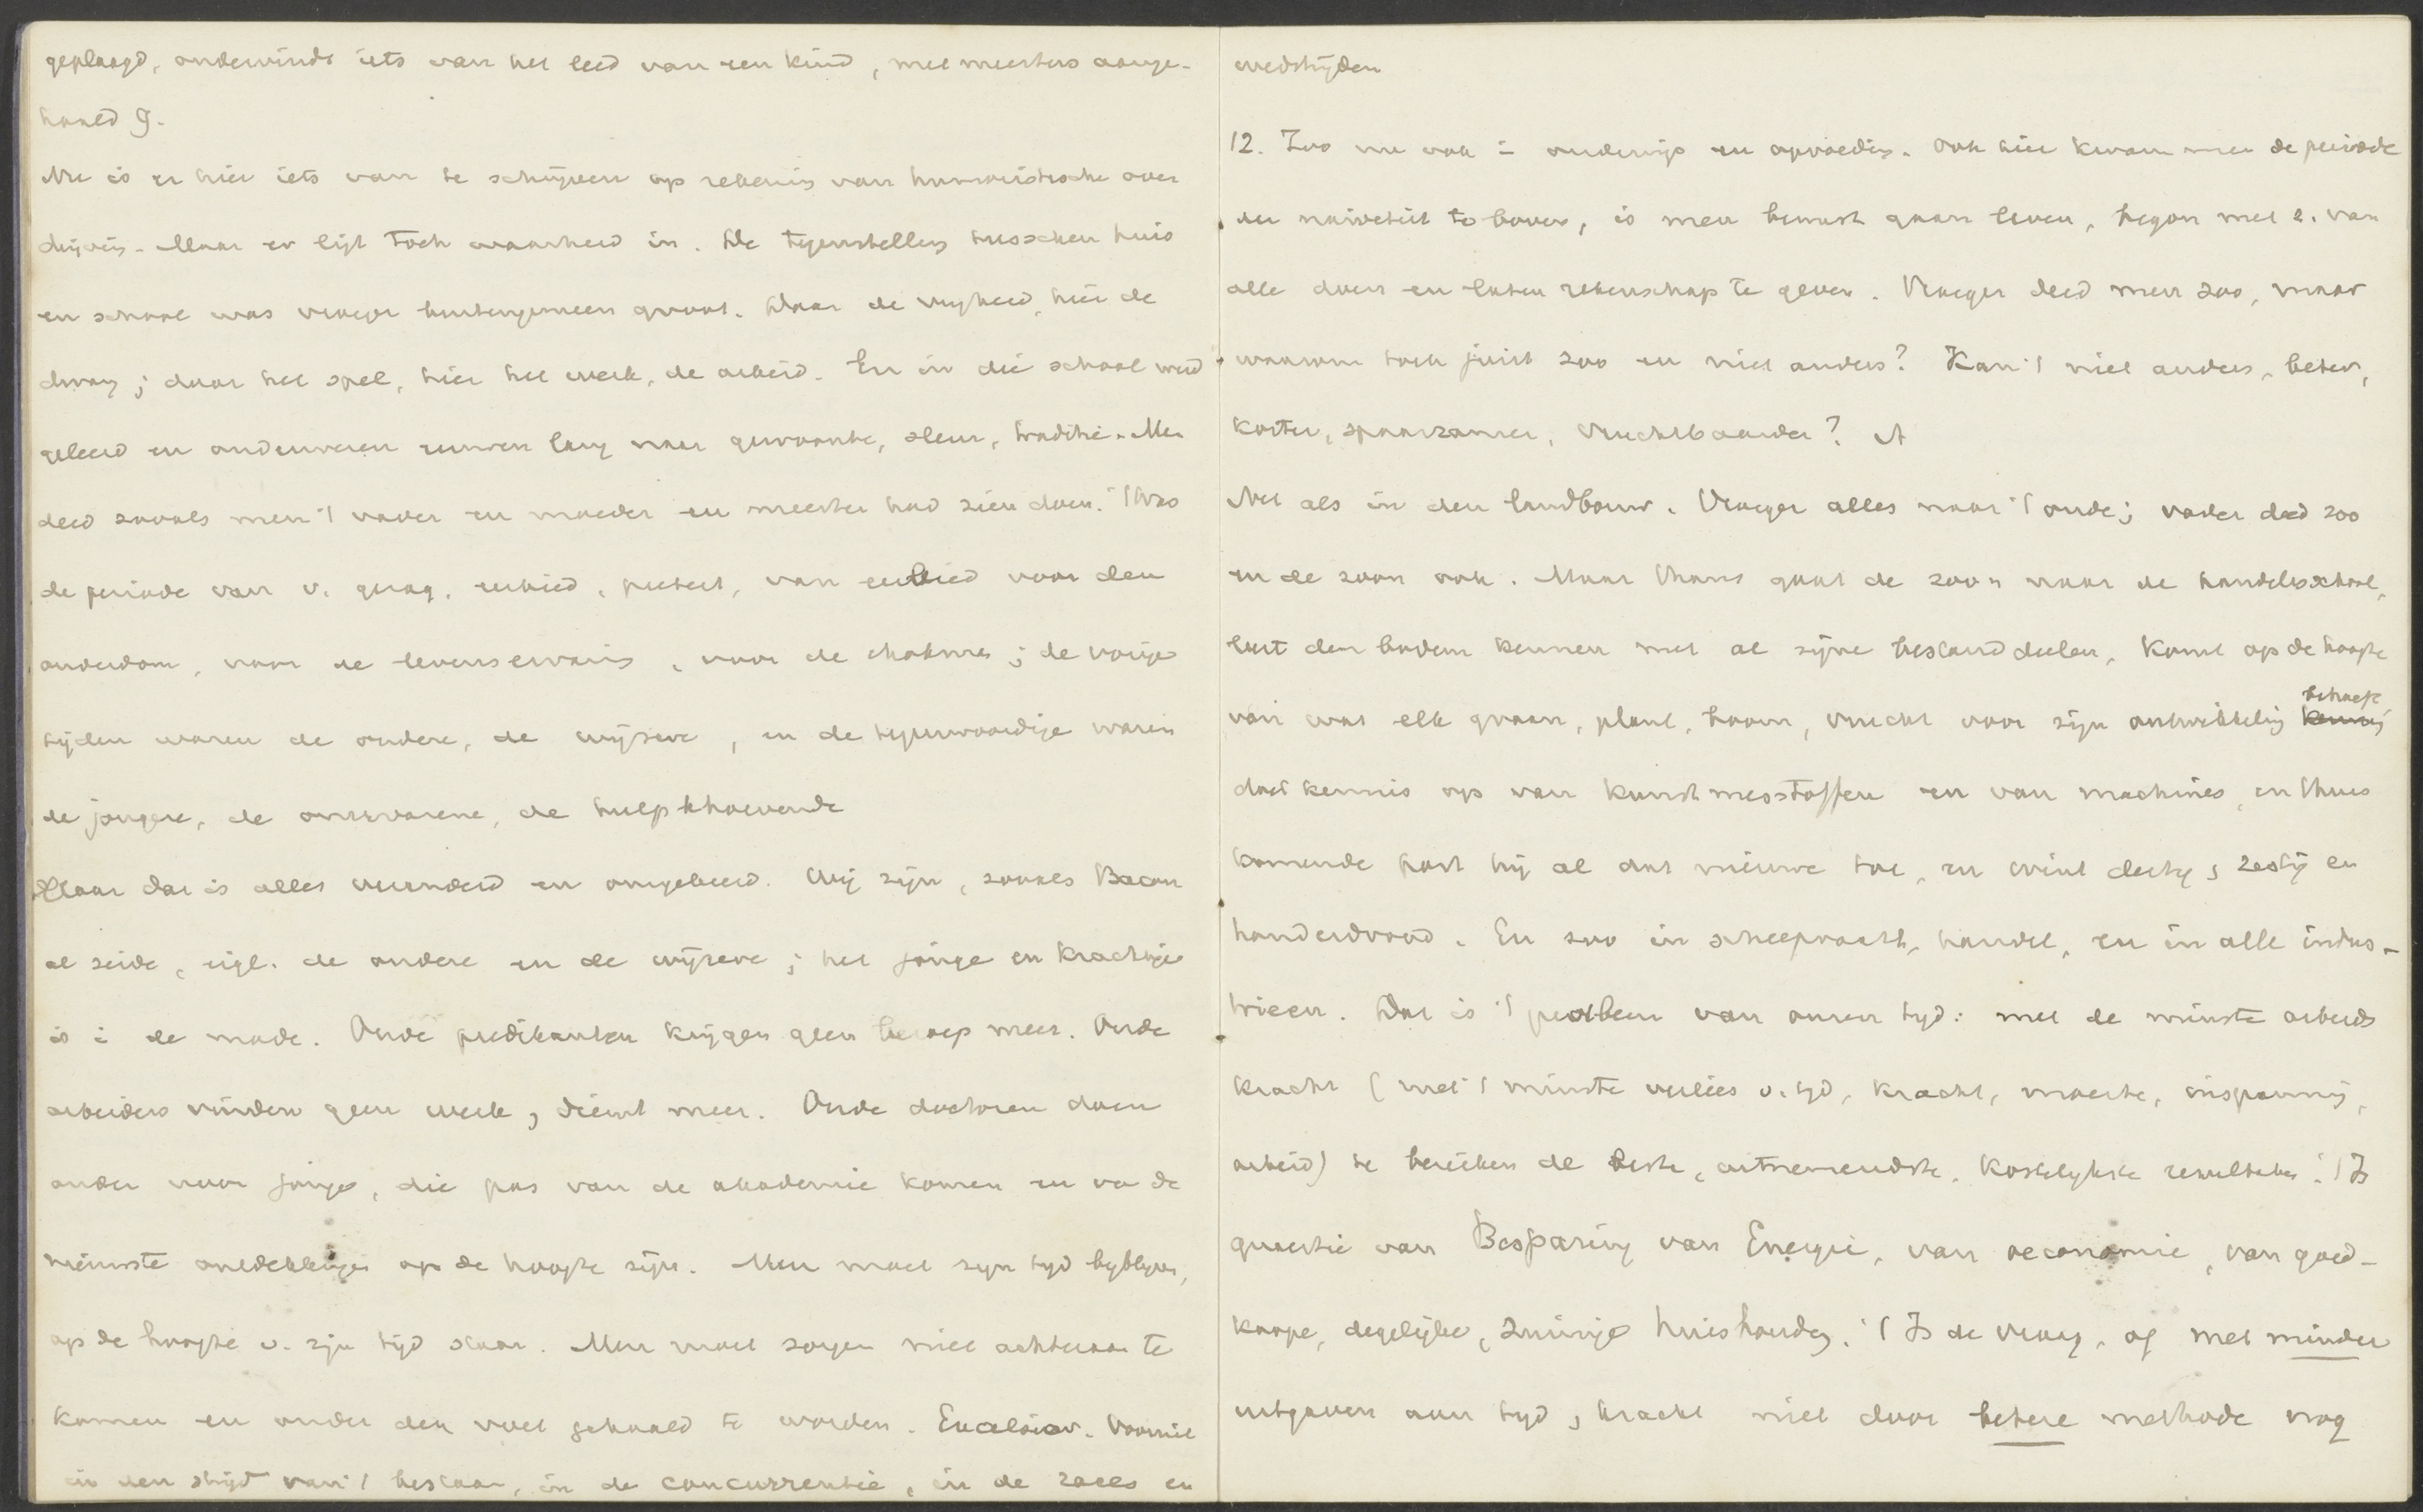 geplaagd, ondervindt iets van het leed van een kind, met meesters aange-
haald 9.
Nu is er hier iets van te schrijven op rekening van humoristische over
drijving. Maar er ligt toch waarheid in. De tegenstelling tusschen huis
en school was vroeger buitengemeen groot. Daar de vrijheid, hier de
dwang; daar het spel, hier het werk, de arbeid. En in die school werd
geleerd en onderwezen eeuwen lang naar gewoonte, sleur, traditie. Men
deed zooals men 't vader en moeder en meester had zien doen. 't Was
de periode van v. gezag, eerbied, pieteit, van eerbied voor den
ouderdom, voor de levenservaring, voor de chokma; de vorige
tijden waren de oudere, de wijzere, en de tegenwoordige waren
de jongere, de onervarene, de hulpbehoevende
Maar dat is alles veranderd en omgekeerd. Wij zijn, zooals Bacon
al zeide, eigl. de oudere en de wijzere; het jonge en krachtige
is i de mode. Oude predikanten krijgen geen beroep meer. Oude
arbeiders vinden geen werk, dienst meer. Oude doctoren doen
onder voor jonge, die pas van de akademie komen en va de
nieuwste ontdekkingen op de hoogte zijn. Men moet zijn tijd bijblijven,
op de hoogte v. zijn tijd staan. Men moet zorgen niet achteraan te
komen en onder den voet gehaald te worden. Excelsior. Vooruit
in den strijd van 't bestaan, in de concurrentie, in de races en
wedstrijden
12. Zoo nu ook i onderwijs en opvoeding. Ook hier kwam men de periode
der naïveteit te boven, is men bewust gaan leven, begon met z. van
alle doen en laten rekenschap te geven. Vroeger deed men zoo, maar
waarom toch juist zoo en niet anders? Kan 't niet anders, beter,
korter, spaarzamer, vruchtbaarder?
Net als in den landbouw. Vroeger alles naar 't oude; vader deed zoo
en de zoon ook. Maar thans gaat de zoon naar de handelsschool,
leert den bodem kennen met al zijne bestanddeelen, komt op de hoogte
van wat elk graan, plant, boom, vrucht voor zijn ontwikkeling behoeft
doet kennis op van kunstmesstoffen en van machines, en thuis
komende past hij al dat nieuwe toe, en wint dertig, zestig en
honderdvoud. En zoo in scheepvaart, handel, en in alle indus-
trieen. Dat is 't probleem van onzen tijd: met de minste arbeids
kracht (met 't minste verlies v. tijd, kracht, moeite, inspanning,
arbeid) te bereiken de beste, uitnemendste, kostelijkste resultaten. 't Is
quaestie van Besparing van Energie, van oeconomie, van goed-
koope, degelijke, zuinige huishouding. 't Is de vraag, of met minder
uitgaven aan tijd, kracht niet door betere methode nog